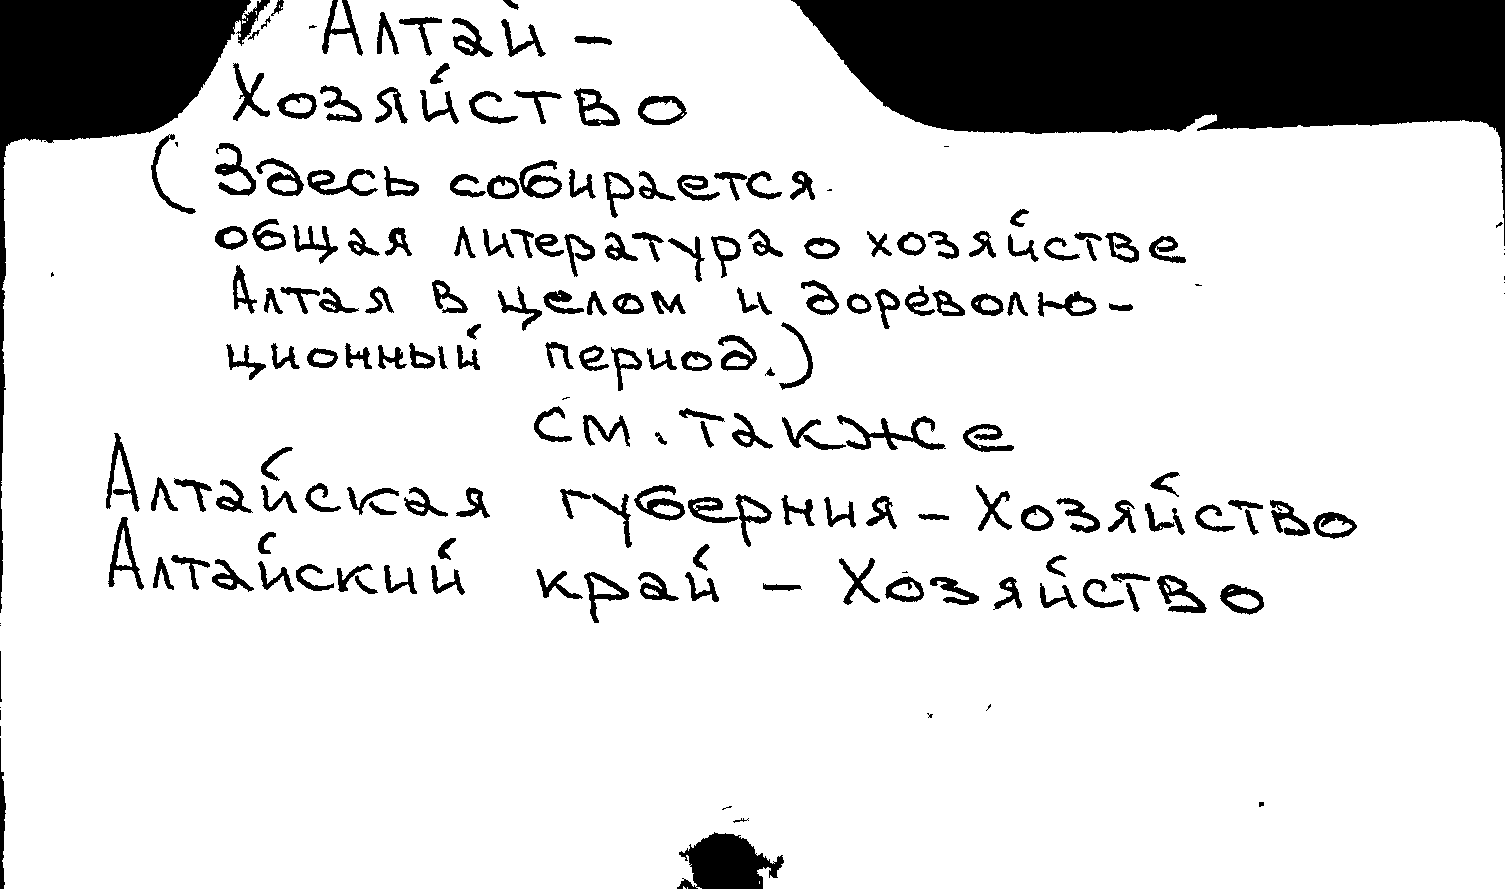 Алтай –
Хозяйство
(Здесь собирается
общая литература о хозяйстве
Алтая в целом и дореволю-
ционный период.)
см. также
Алтайская губерния – Хозяйство
Алтайский край – Хозяйство